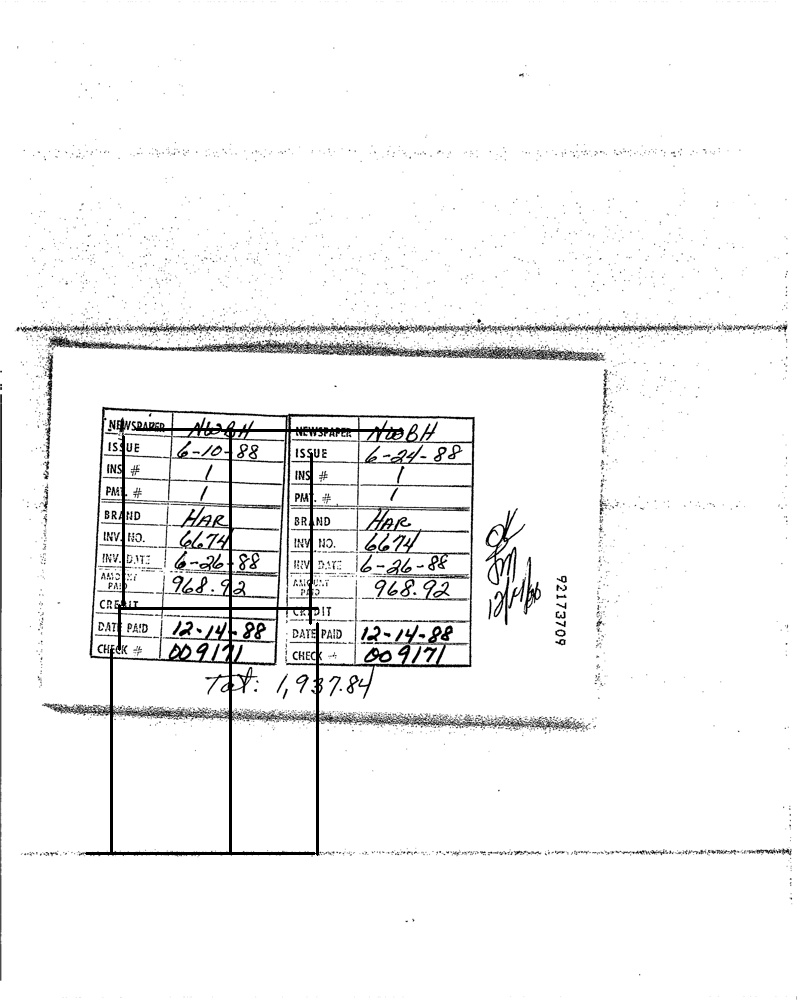 NEWSPAPER NWBH
ISSUE 6-10-88
INS # 1
PMT. # 1
BRAND HAR
INV. NO. 6674
INV. DATE 6-26-88
AMOUNT PAID 968.92
CREDIT
DATE PAID 12-14-88
CHECK # 009171
NEWSPAPER NWBH
ISSUE 6-24-88
INS # 1
PMT. # 1
BRAND HAR
INV. NO. 6674
INV. DATE 6-26-88
AMOUNT PAID 968.92
CREDIT
DATE PAID 12-14-88
CHECK # 009171
Tot: 1,937.84
OK
92173709